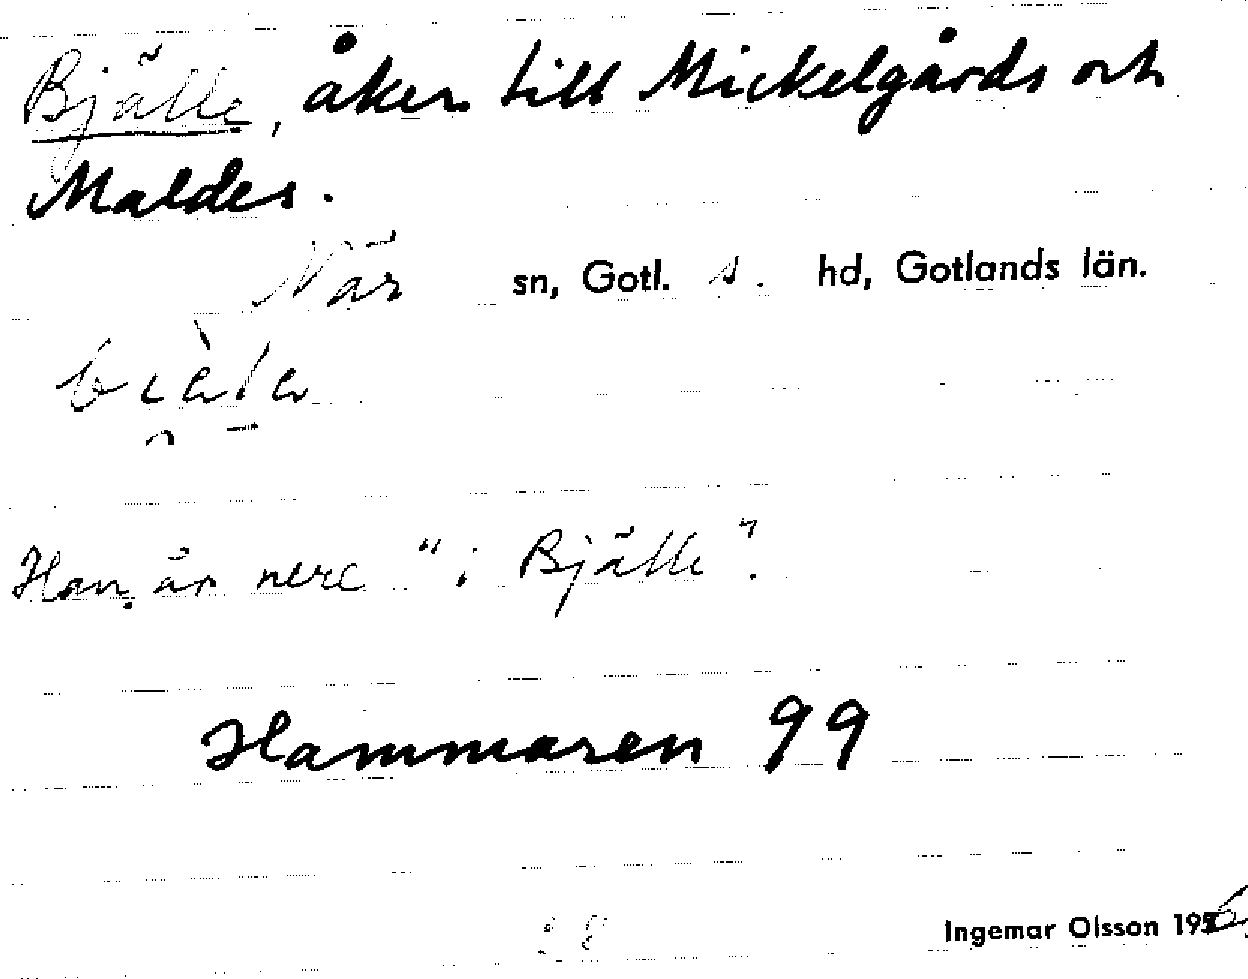 Bjälle, åker till Mickelgårds och
Maldes.
När sn, Gotl. s. hd, Gotlands län.
Han är nere "i Bjälle".
Hammaren 99
28
Ingemar Olsson 1956